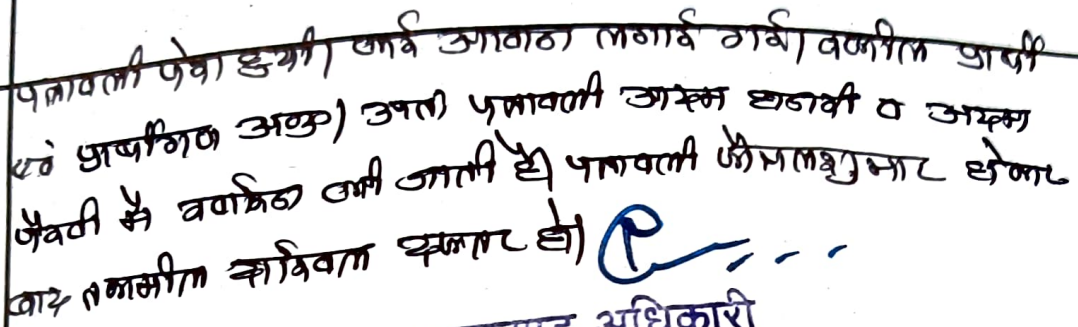 पत्रावली पेश हुयी। कई आवाज लगाई गयी। वकील प्रार्थी
एवं प्रार्थीगण अनु०। उक्त पत्रावली अदम हाजरी व अदम
पैरवी में खारिज की जाती है। पत्रावली फैसलशुमार होकर
बाद तकमील दाखिल दफ्तर हो।
अधिकारी